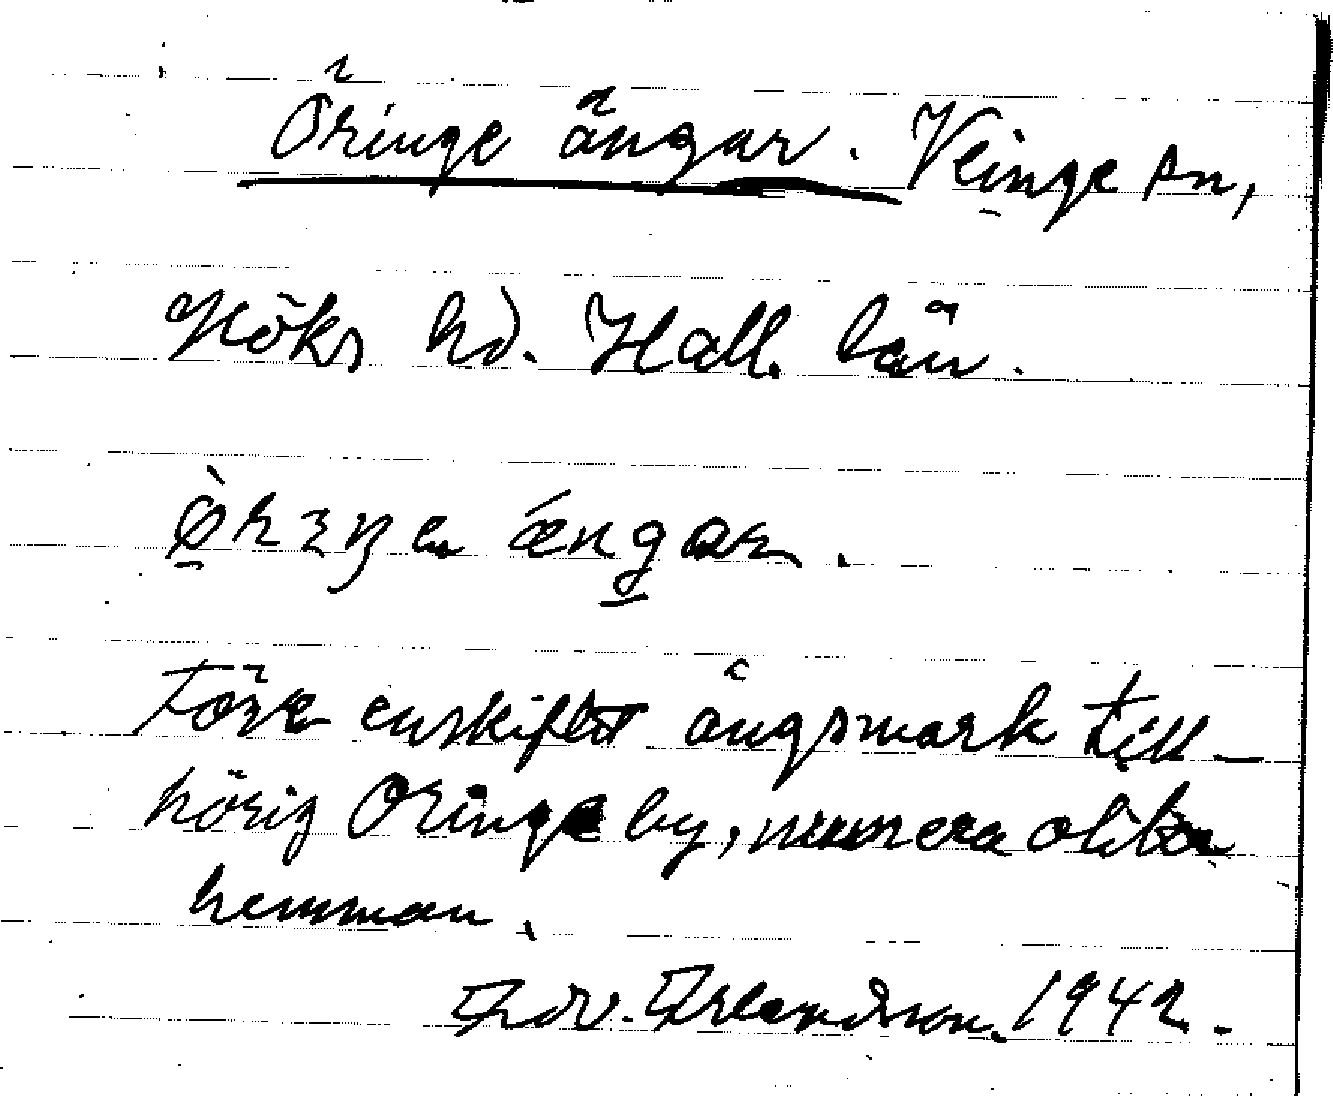 Öringe ängar. Veinge sn,
Höks hd. Hall. län.
Före enskiftet ängsmark till-
hörig Öringe by, numera olika
hemman.
Edv. Erlandsson. 1942.